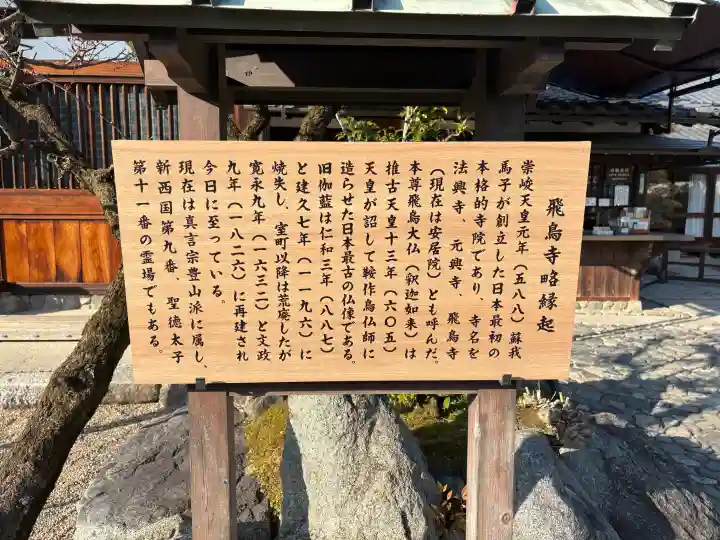 飛鳥寺略縁起
崇峻天皇元年（五八八）蘇我
馬子が創立した日本最初の
本格的寺院であり、寺名を
法興寺、元興寺　飛鳥寺
（現在は安居院）とも呼んだ。
本尊飛鳥大仏（釈迦如来）は
推古天皇十三年（六〇五）
天皇が詔して鞍作鳥仏師に
造らせた日本最古の仏像である。
旧伽藍は仁和三年（八八七）
と建久七年（一一九六）に
焼失し、室町以降は荒廃したが
寛永九年（一六三二）と文政
九年（一八二六）に再建され
今日に至っている。
現在は真言宗豊山派に属し、
新西国第九番、聖徳太子
第十一番の霊場でもある。